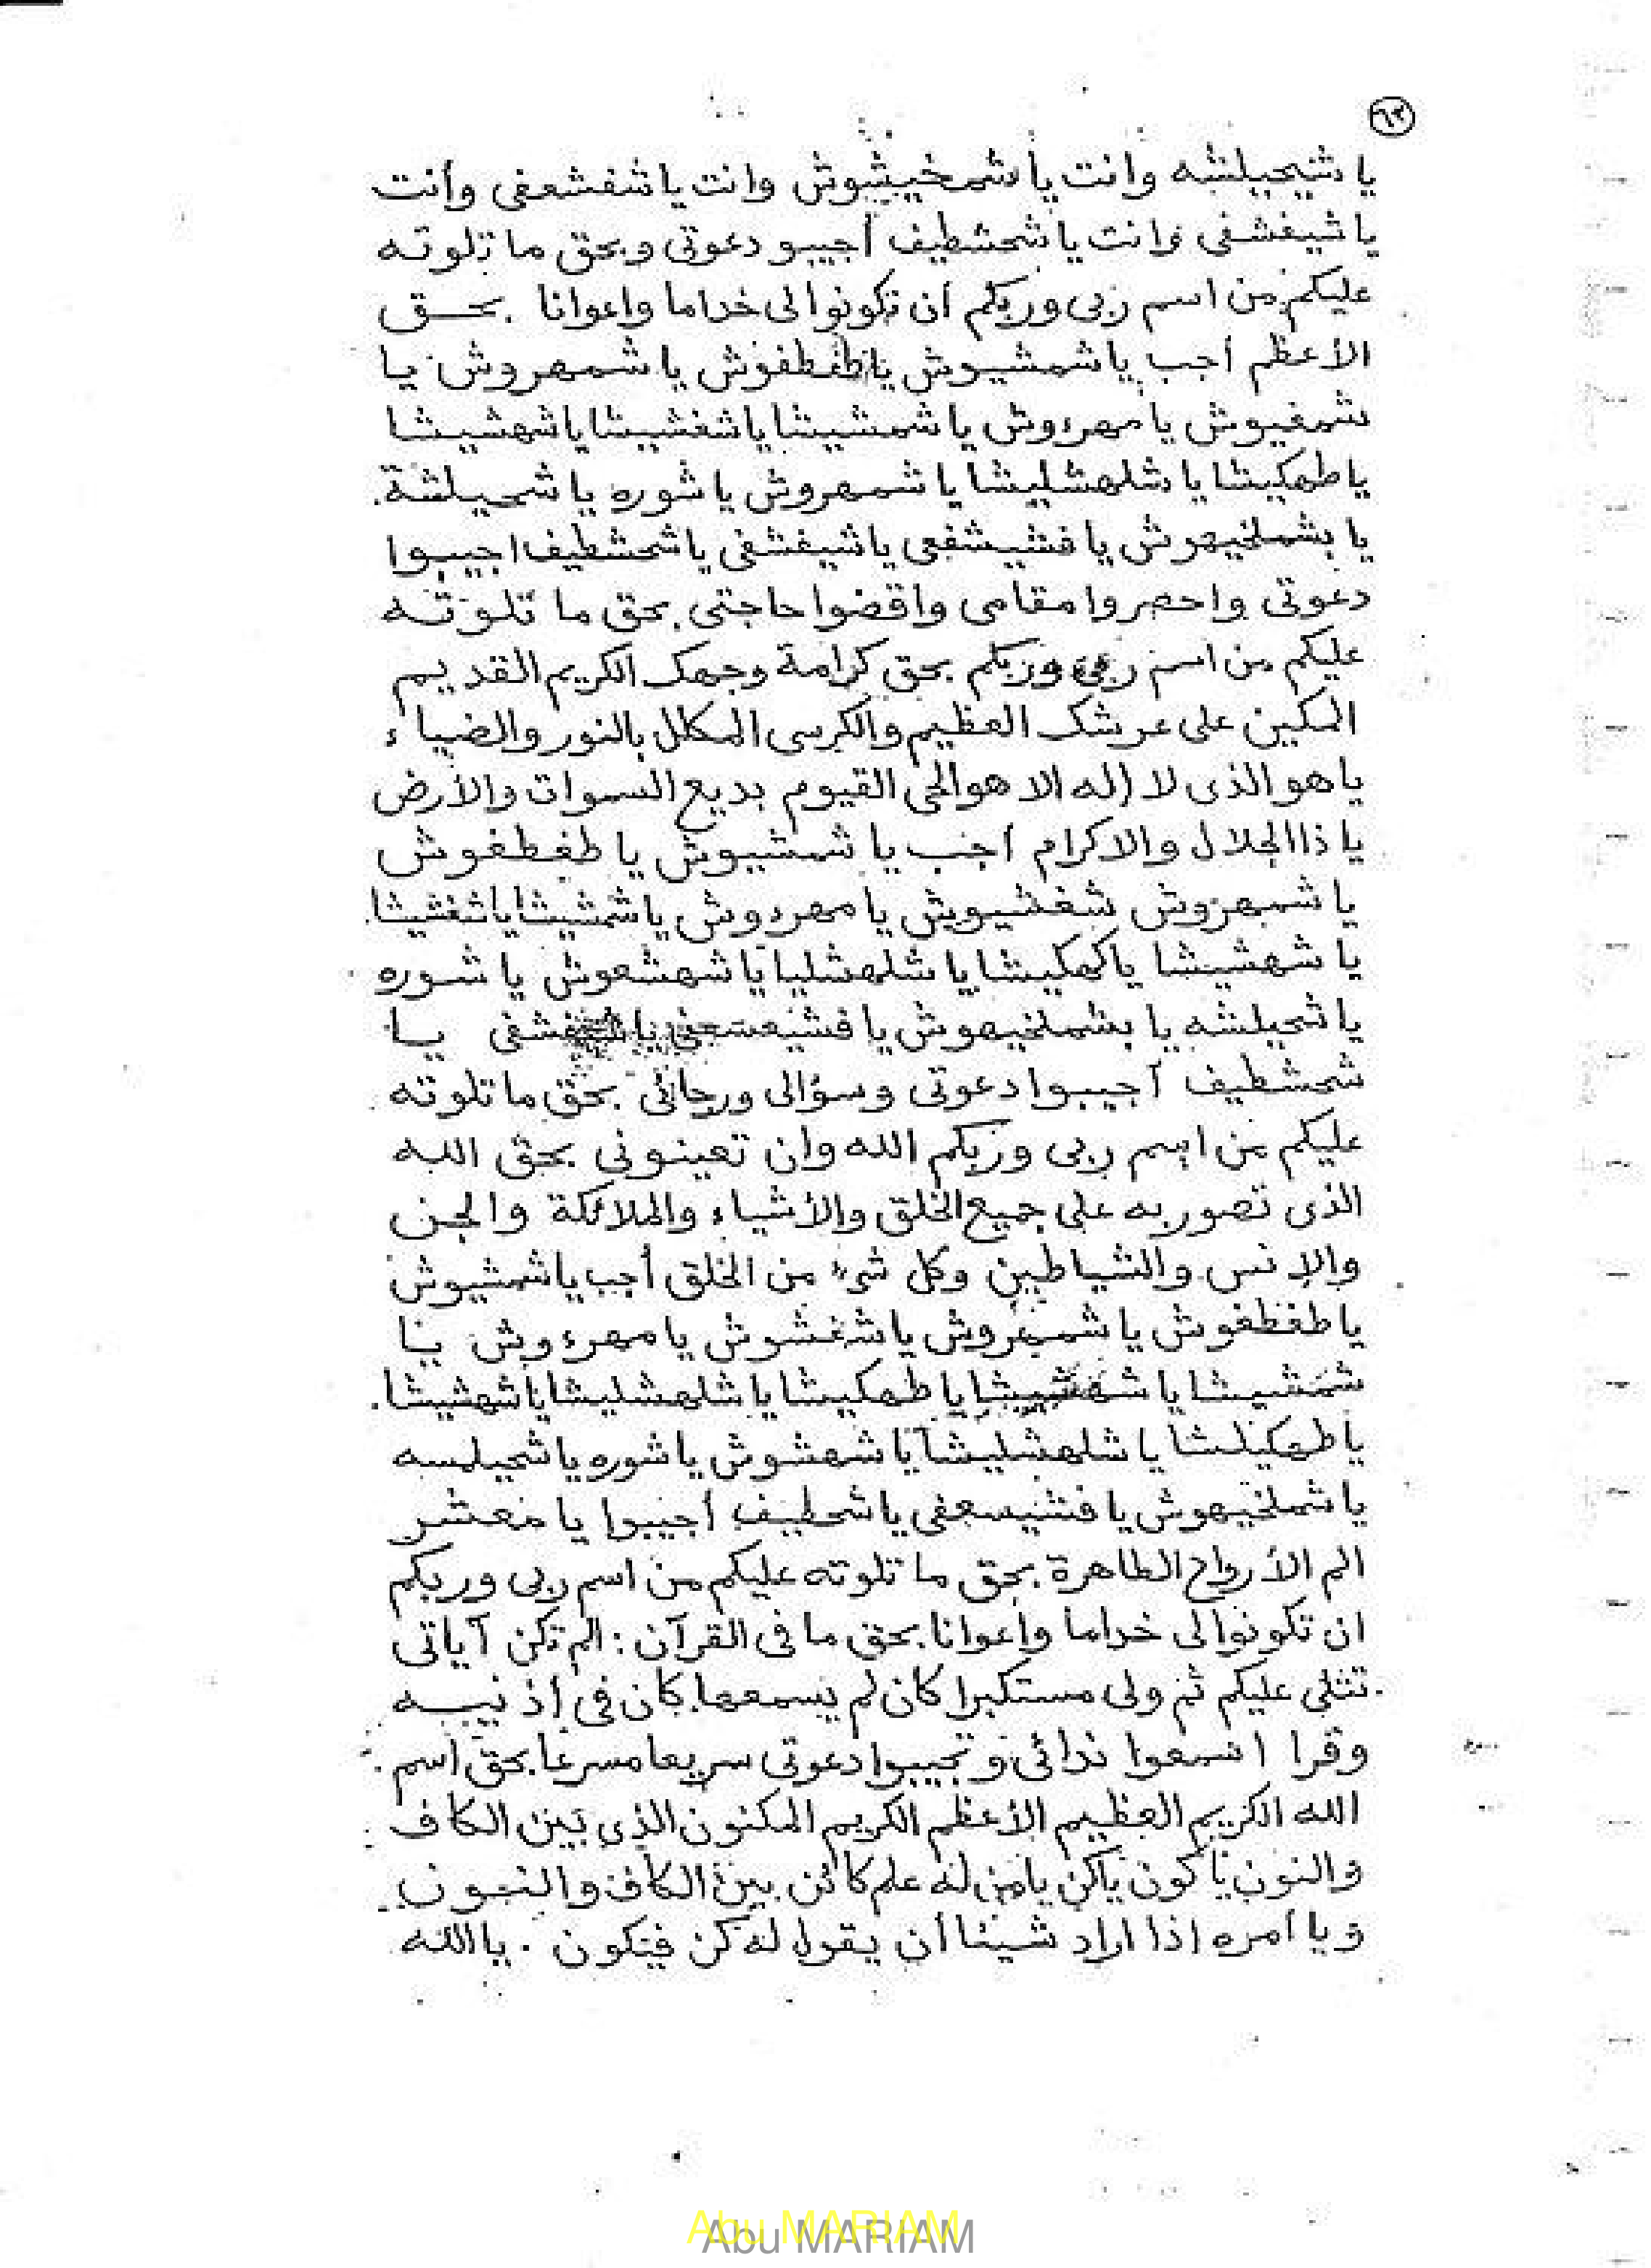 ٦٢
يا شيحيلشه وانت يا شمخيشوش وانت يا شفشعفى وأنت
يا شيغشفى وانت يا شحشطيف أجيبو دعوتى وبحق ما تلوته
عليكم من اسم ربى وربكم أن تكونوا لى خداما واعوانا بحق
الأعظم أجب يا شمشيوش يا طفطفوش يا شمهروش يا
شمغيوش يا مهردوش يا شمشيشا يا شغشيشا يا شهشيشا
يا طهكيشا يا شلهشليشا يا شمهروش يا شوره يا شحيلشة.
يا بشملخيهوش يا فشيشفعى يا شيغشفى يا شحشطيف اجيبوا
دعوتى واحصروا مقامى واقضوا حاجتى بحق ما تلوته
عليكم من اسم ربى وربكم بحق كرامة وجهك الكريم القديم
المكين على عرشك العظيم والكرسى المكلل بالنور والضياء
يا هو الذى لا إله الا هو الحى القيوم بديع السموات والأرض
يا ذا الجلال والاكرام أجب يا شمشيوش يا طفطفوش
يا شمهروش شغشيوش يا مهردوش يا شمشيشا يا شغشيشا.
يا شهشيشا يا كهكيشا يا شلهشليا يا شهشعوش يا شوره
يا شحيلشه يا بشملخيهوش يا يا
شمشطيف أجيبوا دعوتى وسؤالى ورجائى بحق ما تلوته
عليكم من اسم ربى وربكم الله وان تعينونى بحق الله
الذى تصور به على جميع الخلق والأشياء والملائكة والجن
والإنس والشياطين وكل شىء من الخلق أجب يا شمشيوش
يا طفطفوش يا شمهروش يا شغشوش يا مهردوش يا
شمشيشا يا يا طهكيشا يا شلهشليشا يا شهشيشا.
يا طهكيلشا يا شلهشليشا يا شهشوش يا شوره يا شحيلسه
يا شملخيهوش يا فشيسعفى يا شحطيف أجيبوا يا معشر
الم الأرواح الطاهرة بحق ما تلوته عليكم من اسم ربى وربكم
ان تكونوا لى خداما واعوانا بحق ما فى القرآن : الم تكن آياتى
تتلى عليكم ثم ولى مستكبرا كان لم يسمعها كان فى إذنيه
وقرا اسمعوا ندائى وتجيبوا دعوتى سريعا مسرعا بحق اسم
الله الكريم العظيم الأعظم الكريم المكنون الذى بين الكاف
والنون يا كون يا كن يا من له علم كائن بين الكاف والنون
ويا أمره إذا اراد شيئا أن يقول له كن فيكون . يا الله
Abu MARIAM